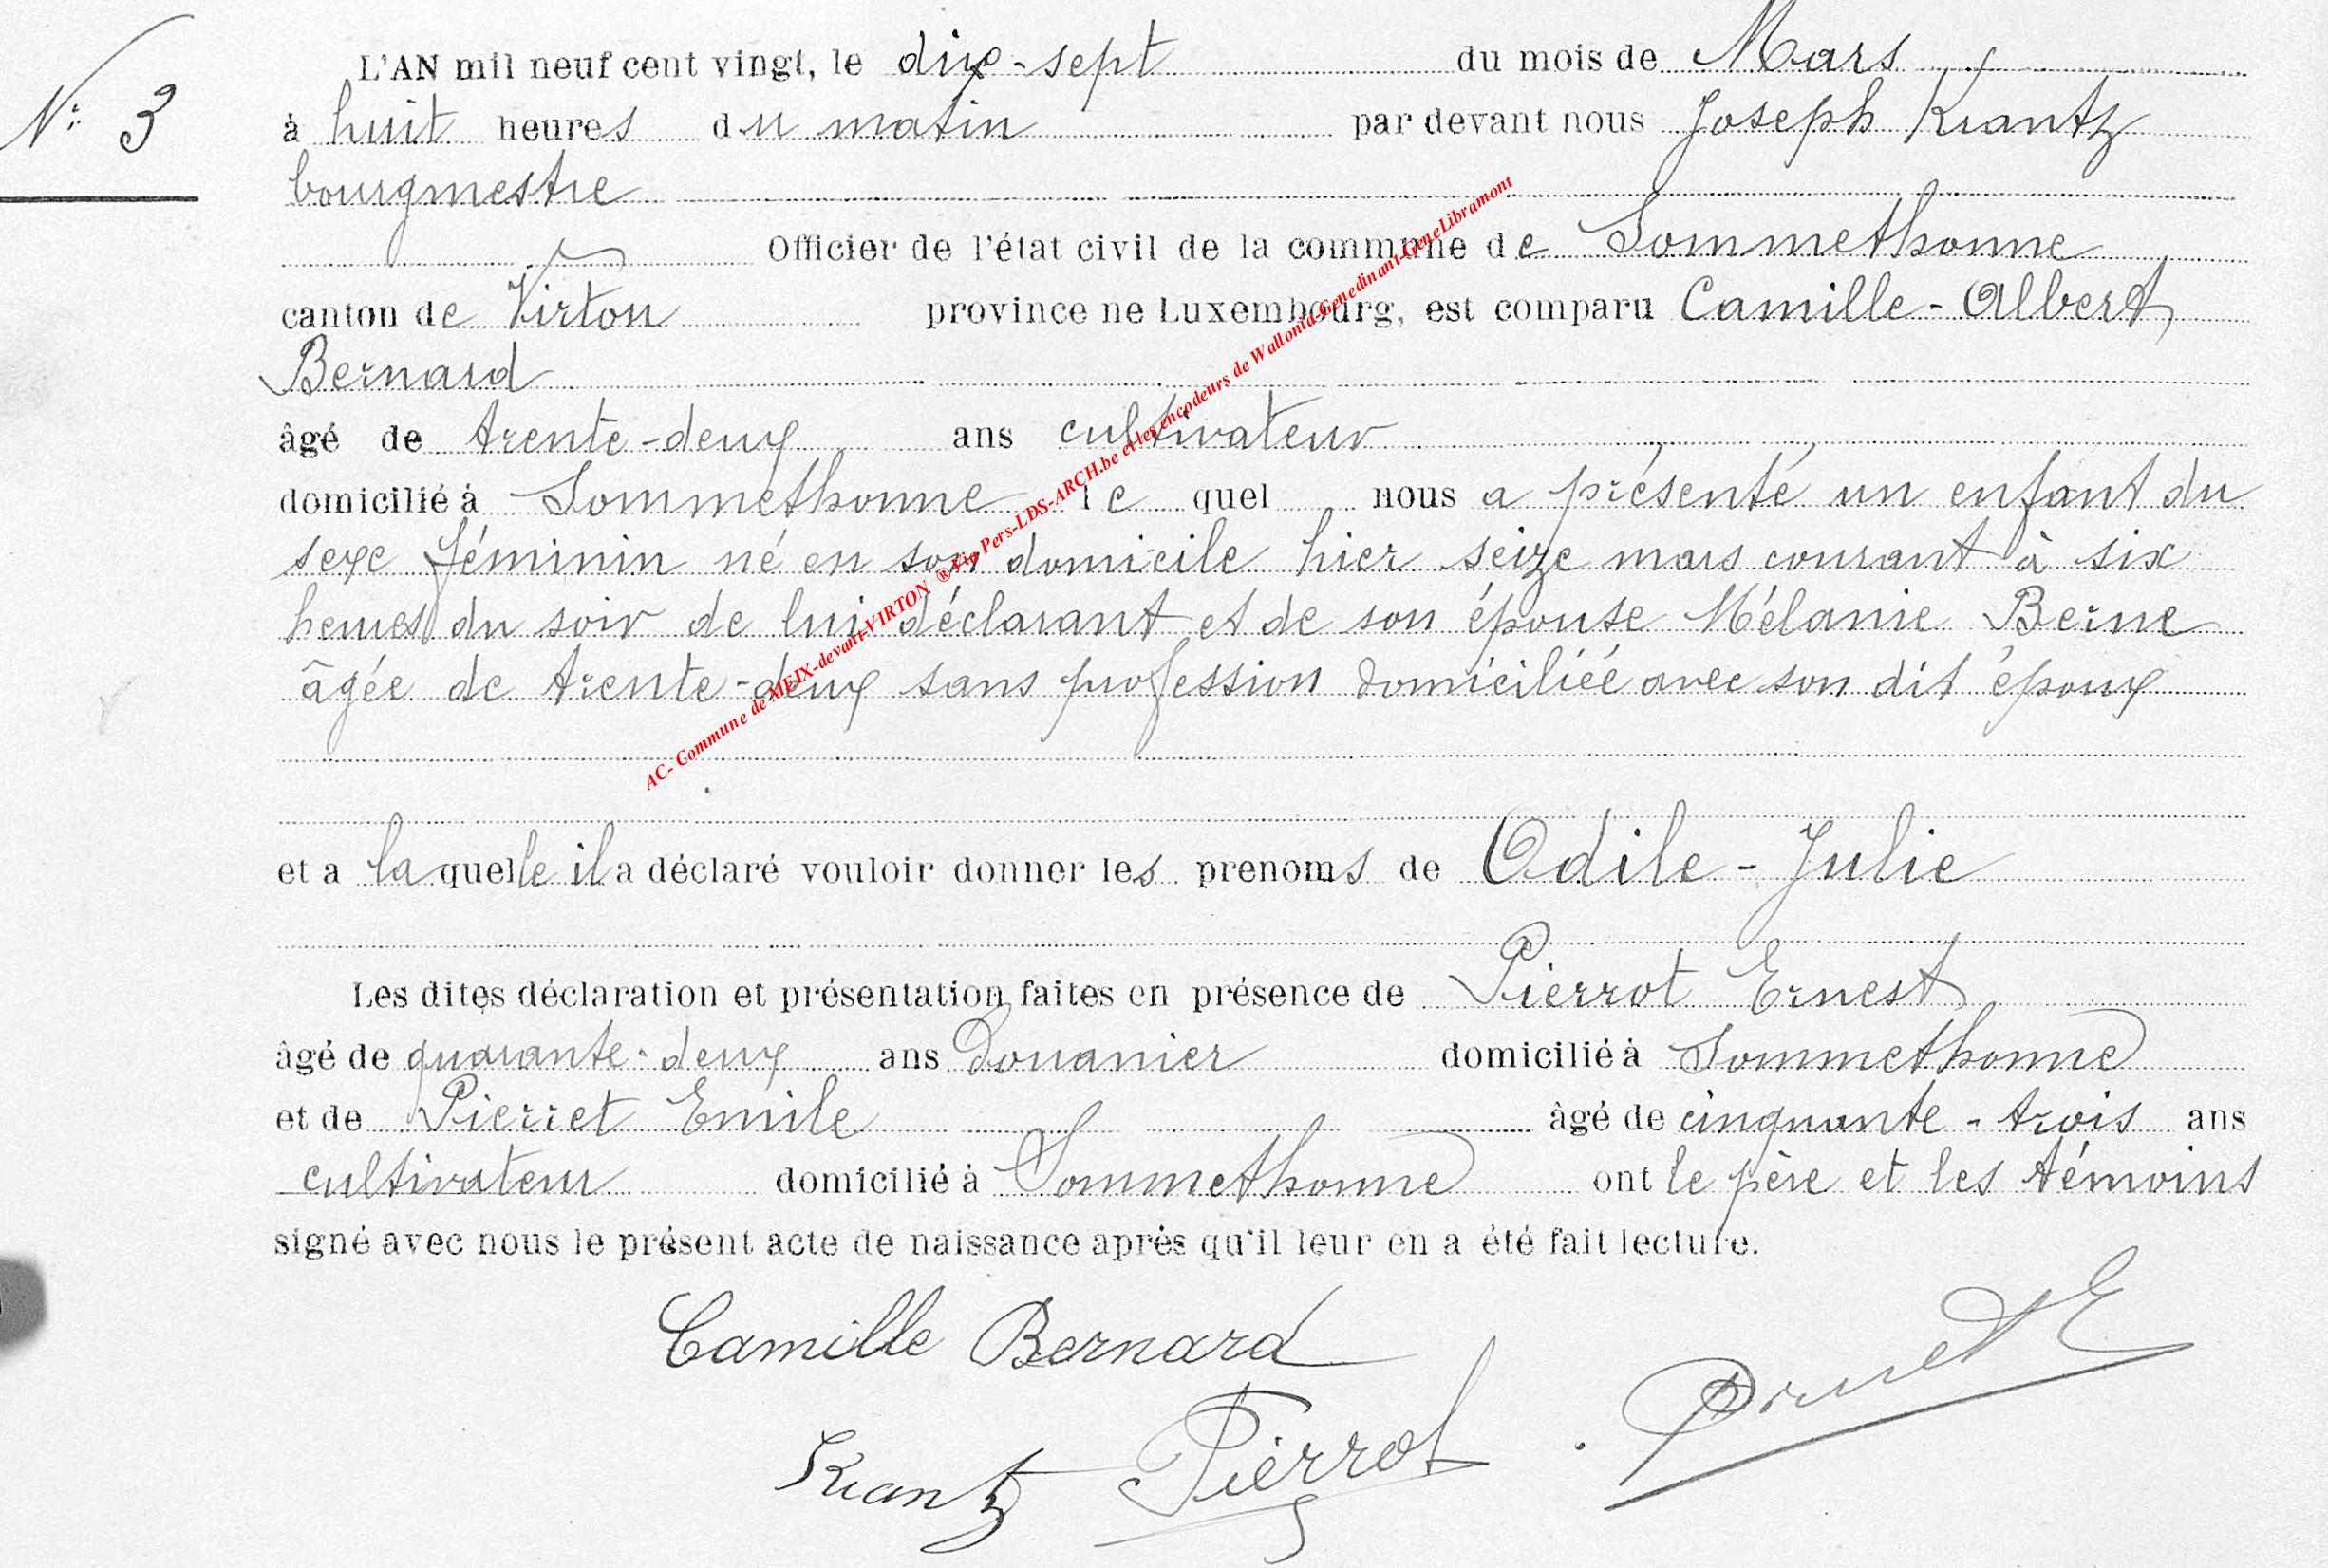 N° 3
L'AN mil neuf cent vingt, le dix-sept du mois de Mars
à huit heures du matin par devant nous Joseph Krantz
bourgmestre
Officier de l'état civil de la commune de Sommethonne
canton de Virton province ne Luxembourg, est comparu Camille-Albert
Bernard
âgé de trente-deux ans cultivateur
domicilié à Sommethonne lequel nous a présenté un enfant du
sexe féminin né en son domicile hier seize mars courant à six
heures du soir de lui déclarant et de son épouse Mélanie Berne
âgée de trente-deux sans profession domiciliée avec son dit époux
et a laquelle il a déclaré vouloir donner les prenoms de Odile-Julie
Les dites déclaration et présentation faites en présence de Pierrot Ernest
âgé de quarante-deux ans Douanier domicilié à Sommethonne
et de Pierret Emile âgé de cinquante-trois ans
cultivateur domicilié à Sommethonne ont le père et les témoins
signé avec nous le présent acte de naissance après qu'il leur en a été fait lecture.
Camille Bernard
Krantz Pierrot
AC- Commune de MEIX-devant-VIRTON ® Via Pers-LDS-ARCH.be et les encodeurs de Wallonia-Genedinant-GeneLibramont